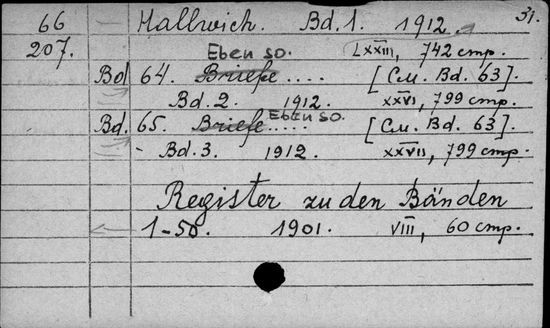 31.
66 Hallwich. Bd. 1. 1912
207. LXXIII, 742 стр.
Eben so.
Bd 64. Briefe .... [См. Bd. 63].
Bd. 2. 1912. XXVI, 799 стр.
Eben so.
Bd. 65. Briefe ..... [См. Bd. 63].
- Bd. 3. 1912. XXVII, 799 стр.
Register zu den Bänden
1-50. 1901. VIII, 60 стр.